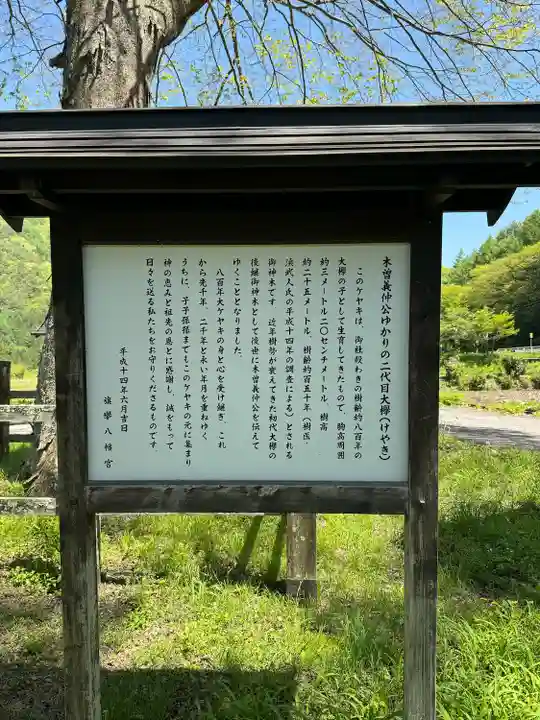 木曽義仲公ゆかりの二代目大欅(けやき)
このケヤキは、御社殿わきの樹齢約八百年の
大欅の子として生育してきたもので、胸高周囲
約三メートル二〇センチメートル、樹高
約二十五メートル、樹齢約百五十年(樹医、
浜武人氏の平成十四年の調査による)とされる
御神木です 近年樹勢が衰えてきた初代大欅の
後継御神木として後世に木曽義仲公を伝えて
ゆくこととなりました。
八百年大ケヤキの身と心を受け継ぎ、これ
から先千年、二千年と永い年月を重ねゆく
うちに、子子孫孫までもこのケヤキの元に集まり
神の恵みと祖先の恩とに感謝し、誠をもって
日々を送る私たちをお守りくださるものです。
平成十四年六月吉日
旗挙八幡宮